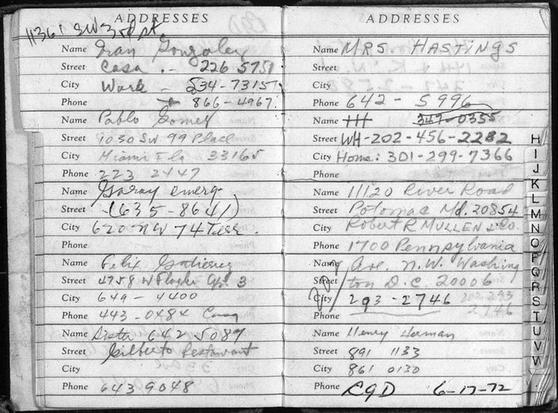 ADDRESSES
11361 SW 3
Name Gonzalez
Street Casa - 226-5751
City Work - 534-7315
Phone 866-4967
Name Pablo Gomez
Street 1030 SW 99 Place
City Miami Fla 33165
Phone 223 2447
Name Garay emerg
Street (635-8641)
City 620 NW 74
Phone
Name Felix Gutierrez
Street 4758 W Flagler 3
City 649-4400
Phone 443-0484
Name Sister 642 5089
Street Gilberto Restaurant
City
Phone 643 9048
ADDRESSES
Name MRS. HASTINGS
Street
City
Phone 642-5996
Name HH 347-0355
Street WH-202-456-2282
City Home: 301-299-7366
Phone
Name 11120 River Road
Street Potomac Md. 20854
City Robert R MULLEN & Co.
Phone 1700 Pennsylvania
Name Ave. N.W. Washing
Street ton D.C. 20006
City 293-2746
Phone
Name Henry
Street 891 1133
City 861 0130
Phone 6-17-72
H
I
J
K
L
M
N
O
P
Q
R
S
T
U
V
W